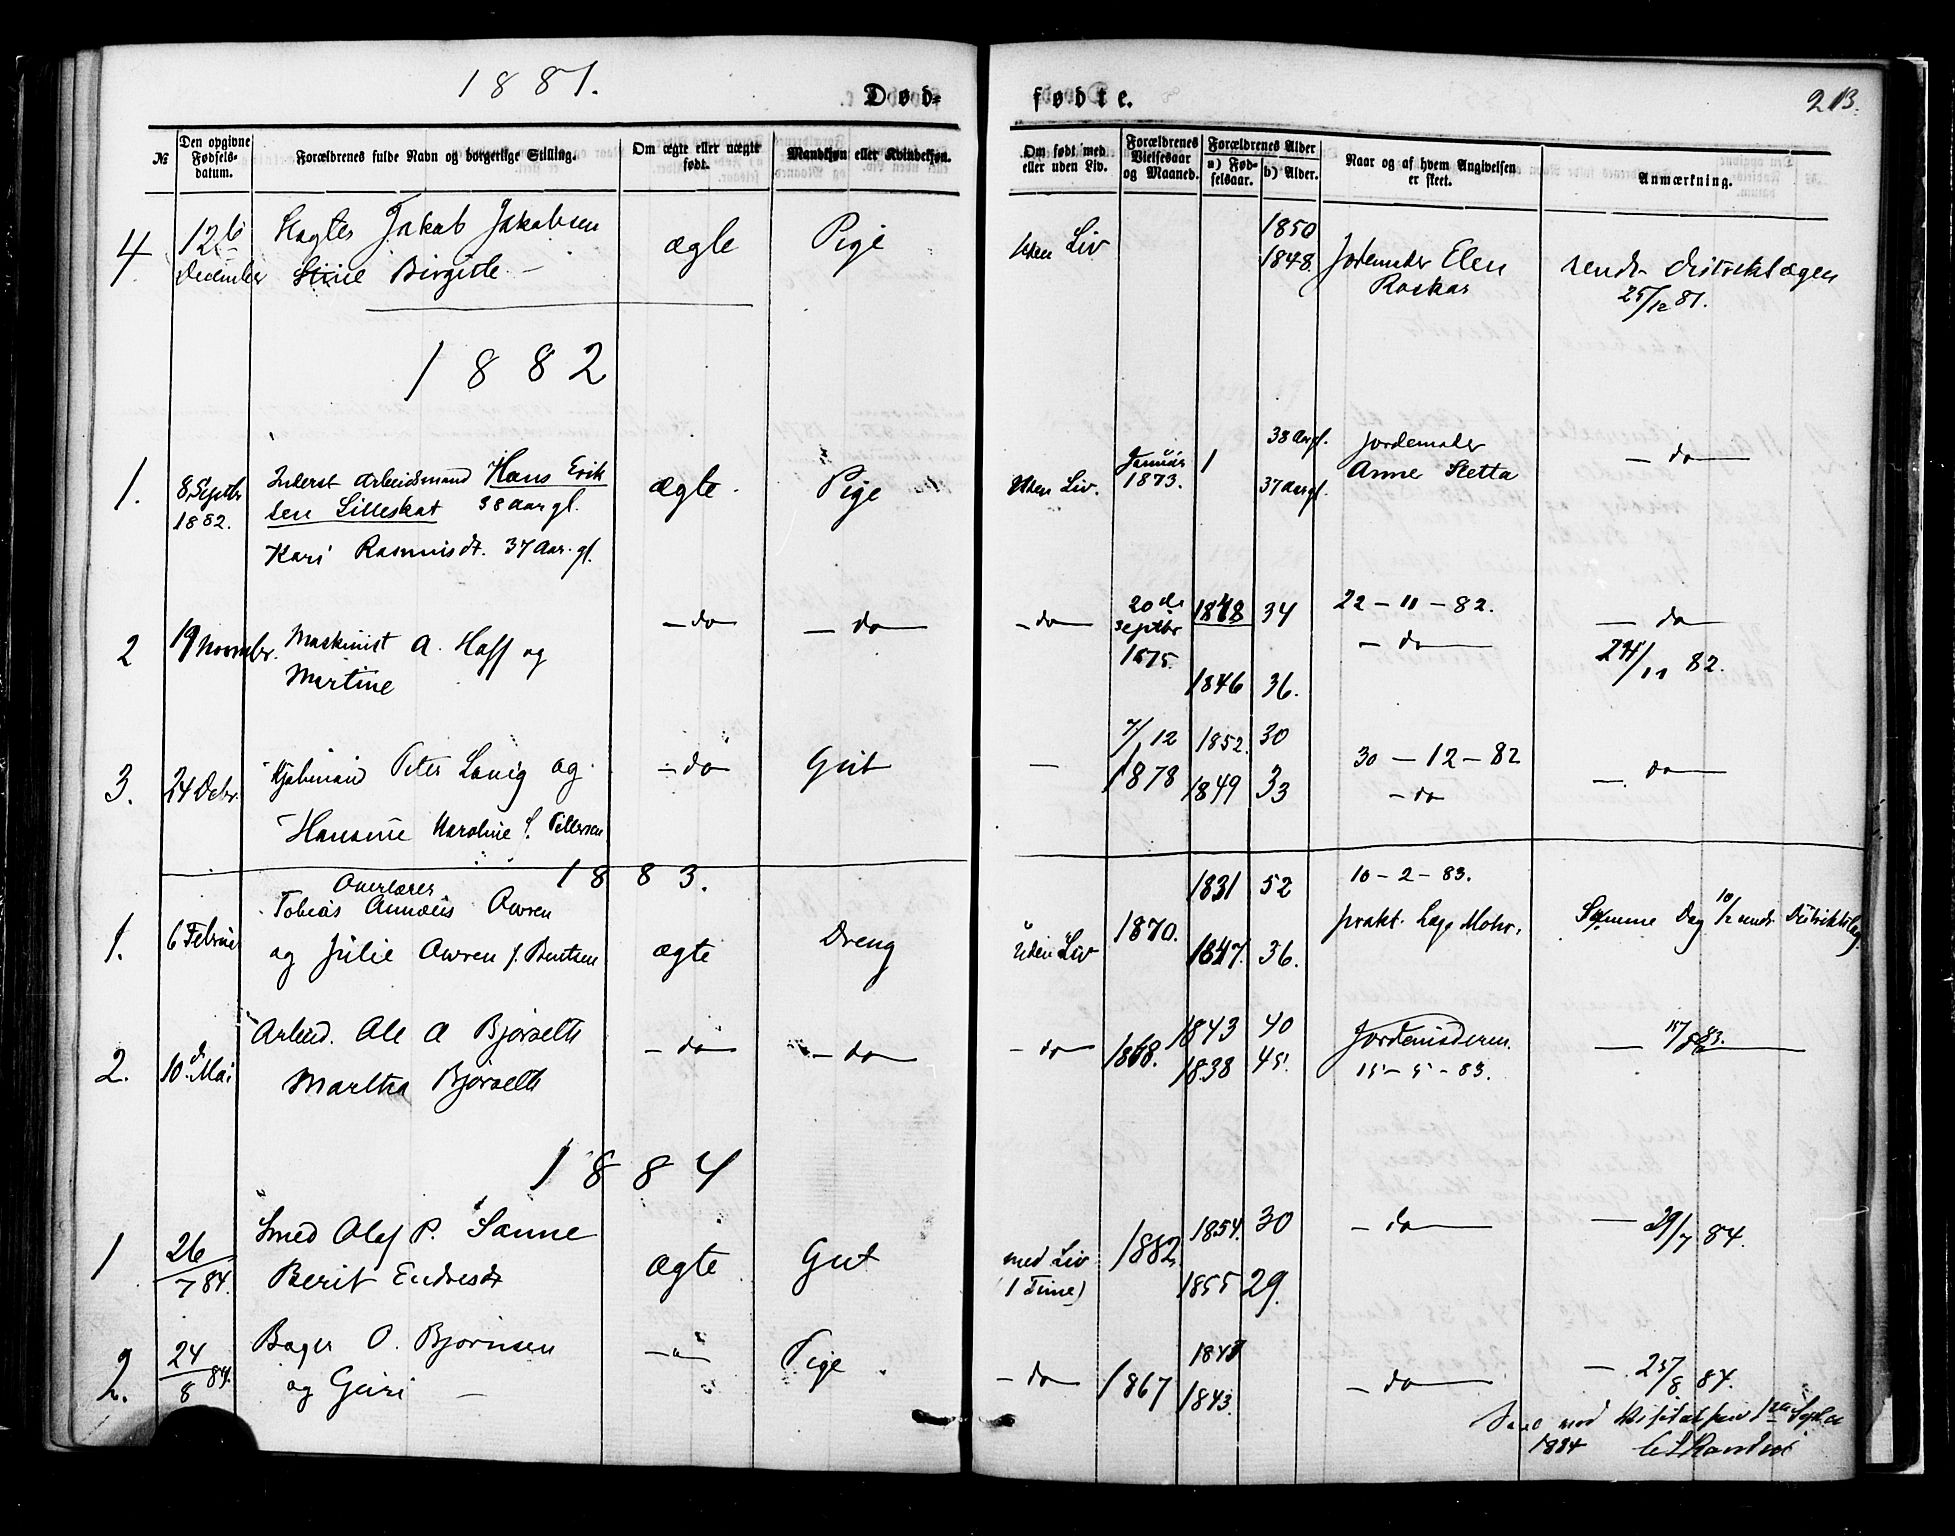 1881.
Død-
fødte.
213.
№
Den opgivne Fødsels-datum.
Forældrenes fulde Navn og borgerlige Stilling.
Om ægte eller uægte født.
Mandkjøn eller Kvindekjøn.
Om født med eller uden Liv.
Forældrenes Vielsesaar og Maaned.
Forældrenes Alder
a) Fød-selsaar.
b) Alder.
Naar og af hvem Angivelsen er skeet.
Anmærkning.
4 12te Jakob Jakobsen ægte Pige Uden Liv 1850
December Birgitte 1848. Jordemoder Elen Roskar sendt Distriktslægen
25/12 81.
1882
1. 8 Septbr 1882. Inderst Arbeidsmand Hans Erik ægte. Pige Uden Liv. Januar 1873. 1 38 Aar gl. Jordemoder — do —
sen Lilleskat 38 Aar gl. 37 Aar gl. Anne Sletta
Kari Rasmusdt. 37 Aar. gl.
2 19 November. Maskinist A. Hoff og — do — — do — — do — 20de Septbr 1875. 1848 34 22 – 11 – 82. — do —
Martine 1846 36. — do — 24/11 82.
3. 24 Debr. Peter Lovig og — do — Gut — 7/12 1878 1852. 30 30 – 12 – 82 — do —
Hansine Karoline f. Pettersen 1849 33 — do
1883.
Overlærer
1. 6 Februar Tobias Annæus Owren ægte Dreng Uden Liv 1870. 1831 52 10 – 2 – 83. Samme Dag 10/2 sendt Distriktslæg
og Julie Owren f. Bentsen 1847. 36. prakt. Læge Mohr.
2. 10de Mai Arbeid. Ole A Bjørseth — do — — do — — do 1868. 1843 40 Jordemoderen. — 15/5 83.
Martha Bjørseth 1838 45 15 – 5 – 83.
1884
1 26/7 84. Smed Olaf P. Sanne ægte Gut med Liv 1882. 1854. 30 — do — — 29/7 84.
Berit Endresdt (1 Time) 1855 29.
2. 24/8 84. Bager O. Bjørnsen — " — Pige — do — 1867 1843. — do — — 25/8 84.
og Guri —
Visitatsen 1ste Septbr
1884